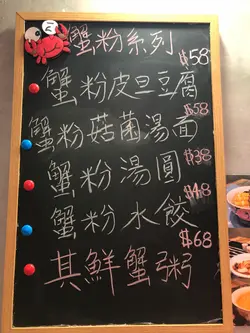 蟹粉系列
$58
蟹粉皮旦豆腐
$58
蟹粉菇菌湯面
$38
蟹粉湯圓
$48
蟹粉水餃
$68
其鮮蟹粥